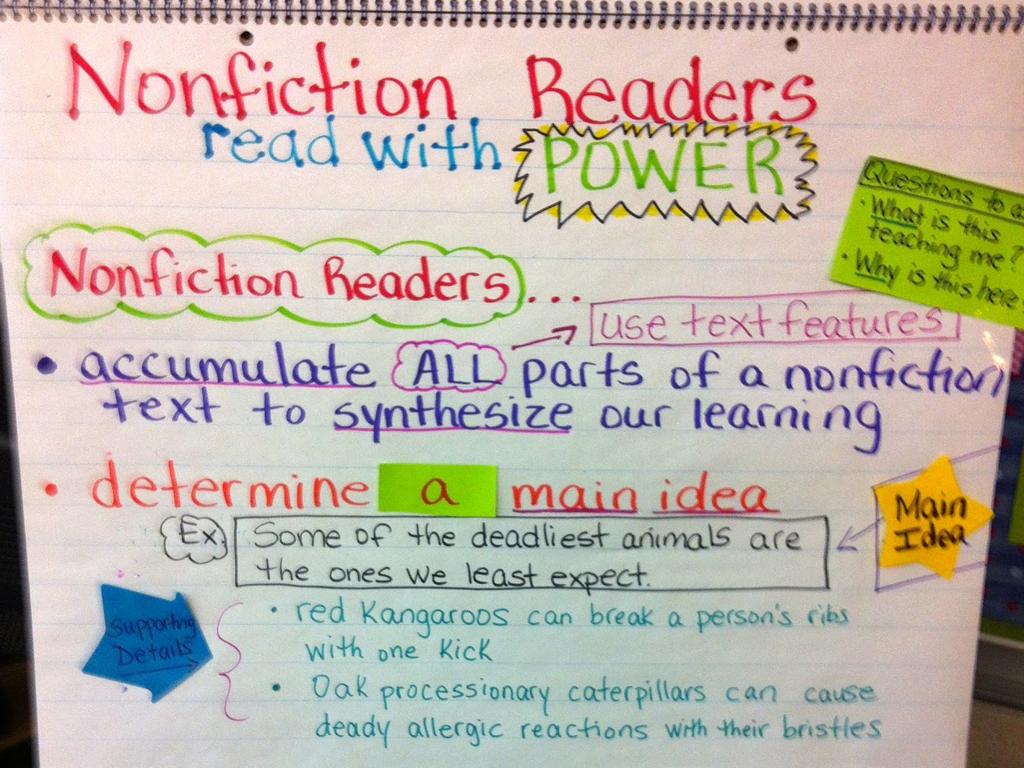 Nonfiction Readers
read with POWER
Questions to a
• What is this
teaching me?
• Why is this here
Nonfiction Readers...
use text features
• accumulate ALL parts of a nonfiction
text to synthesize our learning
• determine a main idea
Main
Idea
Ex Some of the deadliest animals are
the ones we least expect.
Supporting
Details
• red Kangaroos can break a person's ribs
with one kick
• Oak processionary caterpillars can cause
deady allergic reactions with their bristles